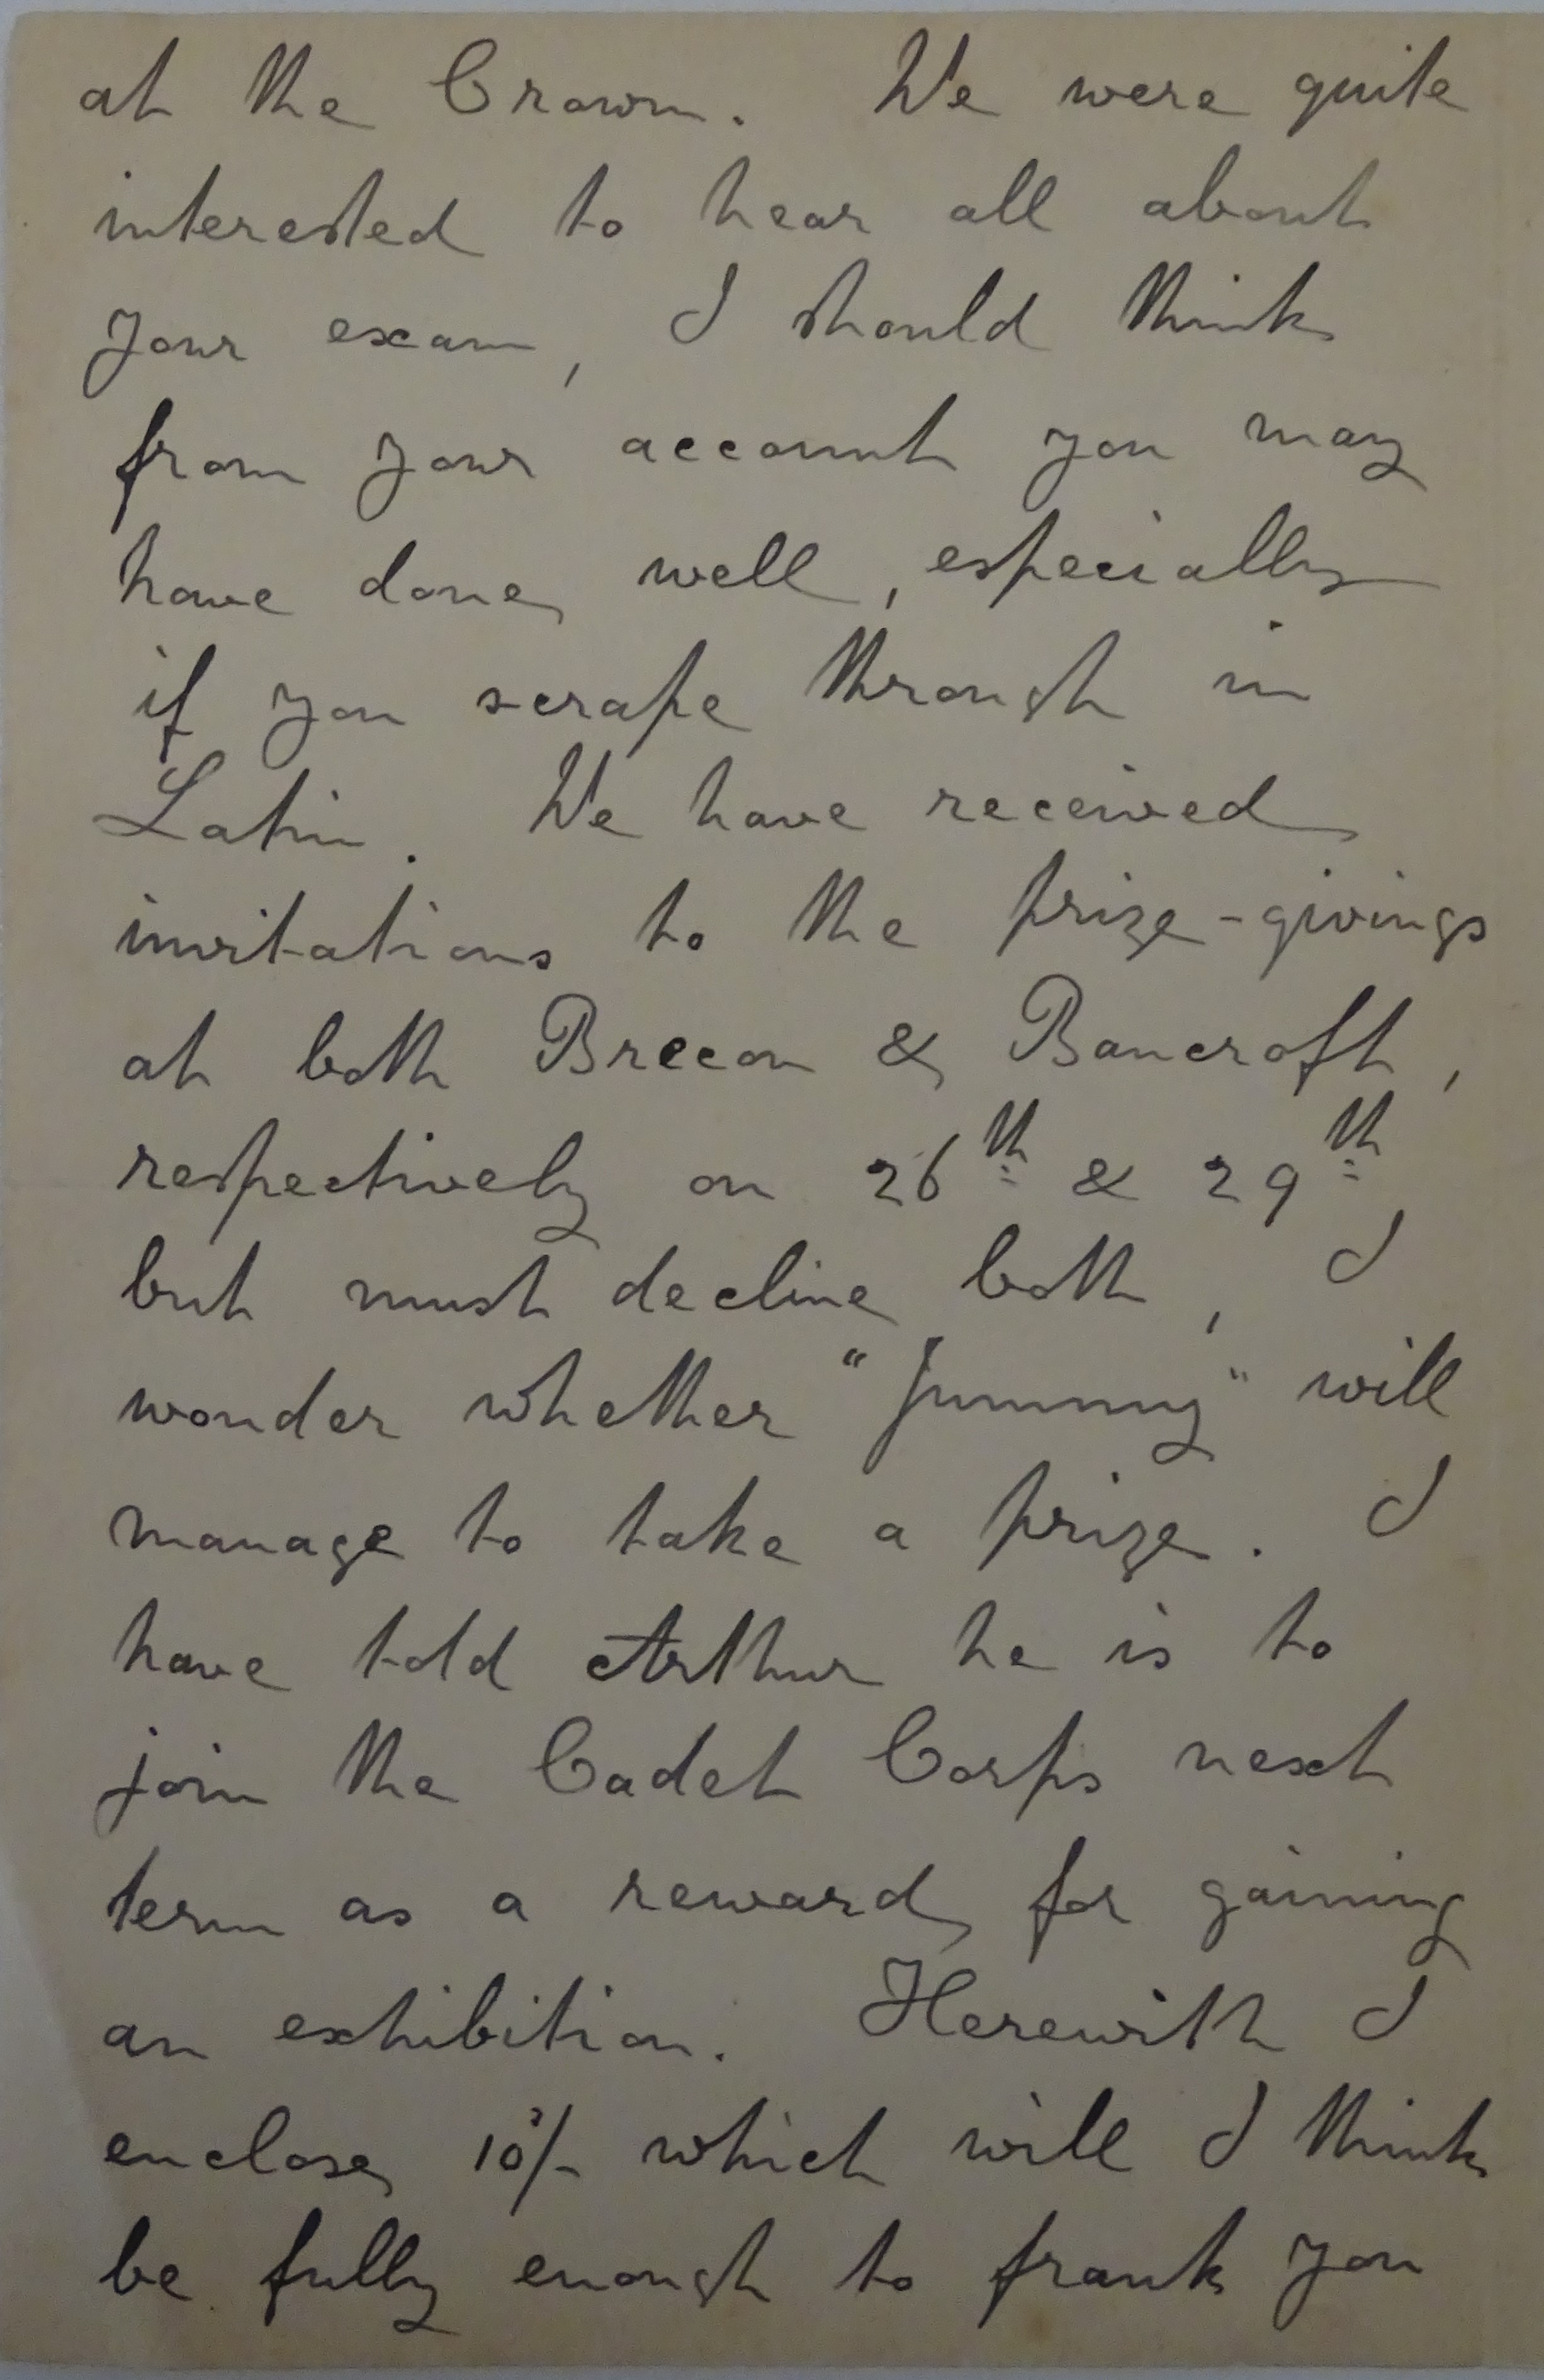 at the Crown. We were quite
interested to hear all about
your exam, I should think
from your account you may
have done well, especially
if you scrape through in
Latin. We have received
invitations to the prize-givings
at both Brecon & Bancroft,
respectively on 26th & 29th,
but must decline both, I
wonder whether "Jummy" will
manage to take a prize. I
have told Arthur he is to
join the Cadet Corps next
term as a reward for gaining
an exhibition. Herewith I
enclose 10s/- which will I think
be fully enough to frank you